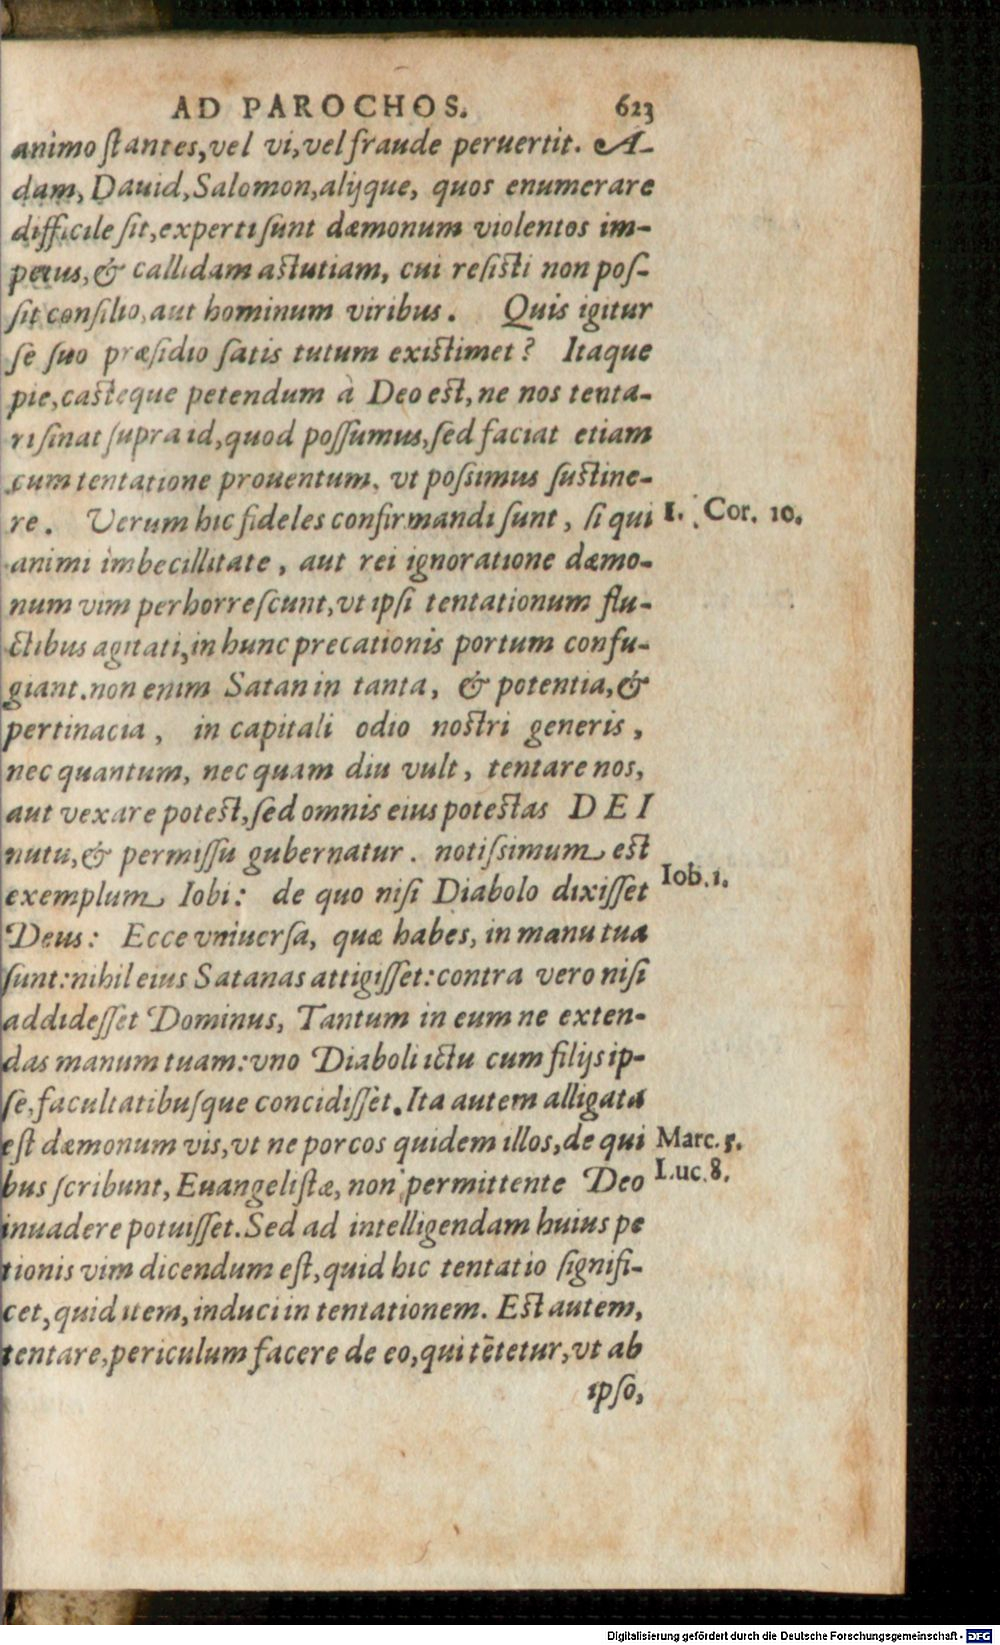 AD PAROCHOS. 623
animo stantes, vel vi, vel fraude peruertit. A-
dam, Dauid, Salomon, alijque, quos enumerare
difficile sit, experti sunt dæmonum violentos im-
petus, & callidam astutiam, cui resisti non pos-
sit consilio, aut hominum viribus. Quis igitur
se suo præsidio satis tutum existimet? Itaque
pie, casteque petendum à Deo est, ne nos tenta-
ri sinat supra id, quod possumus, sed faciat etiam
cum tentatione prouentum, vt possimus sustine-
re. Verum hic fideles confirmandi sunt, si qui
1. Cor. 10.
animi imbecillitate, aut rei ignoratione dæmo-
num vim perhorrescunt, vt ipsi tentationum flu-
ctibus agitati, in hunc precationis portum confu-
giant. non enim Satan in tanta, & potentia, &
pertinacia, in capitali odio nostri generis,
nec quantum, nec quam diu vult, tentare nos,
aut vexare potest, sed omnis eius potestas DEI
nutu, & permissu gubernatur. notissimum est
exemplum Iobi: de quo nisi Diabolo dixisset
Iob. 1.
Deus: Ecce vniuersa, quæ habes, in manu tua
sunt: nihil eius Satanas attigisset: contra vero nisi
addidesset Dominus, Tantum in eum ne exten-
das manum tuam: vno Diaboli ictu cum filijs ip-
se, facultatibusque concidisset. Ita autem alligata
est dæmonum vis, vt ne porcos quidem illos, de qui
Marc. 5.
bus scribunt, Euangelistæ, non permittente Deo
Luc. 8.
inuadere potuisset. Sed ad intelligendam huius pe
tionis vim dicendum est, quid hic tentatio signifi-
cet, quid item, induci in tentationem. Est autem,
tentare, periculum facere de eo, qui tētetur, vt ab
ipso,
Digitalisierung gefördert durch die Deutsche Forschungsgemeinschaft - DFG